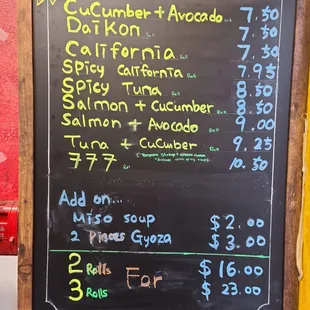 CuCumber + Avocado Roll 7.50
DaiKon Roll 7.50
California Roll 7.50
Spicy California Roll 7.95
Spicy Tuna Roll 8.50
Salmon + CuCumber Roll 8.50
Salmon + Avocado Roll 9.00
Tuna + CuCumber Roll 9.25
777 Roll 10.50
Add on...
Miso soup $2.00
2 Pieces Gyoza $3.00
2 Rolls For $16.00
3 Rolls $23.00